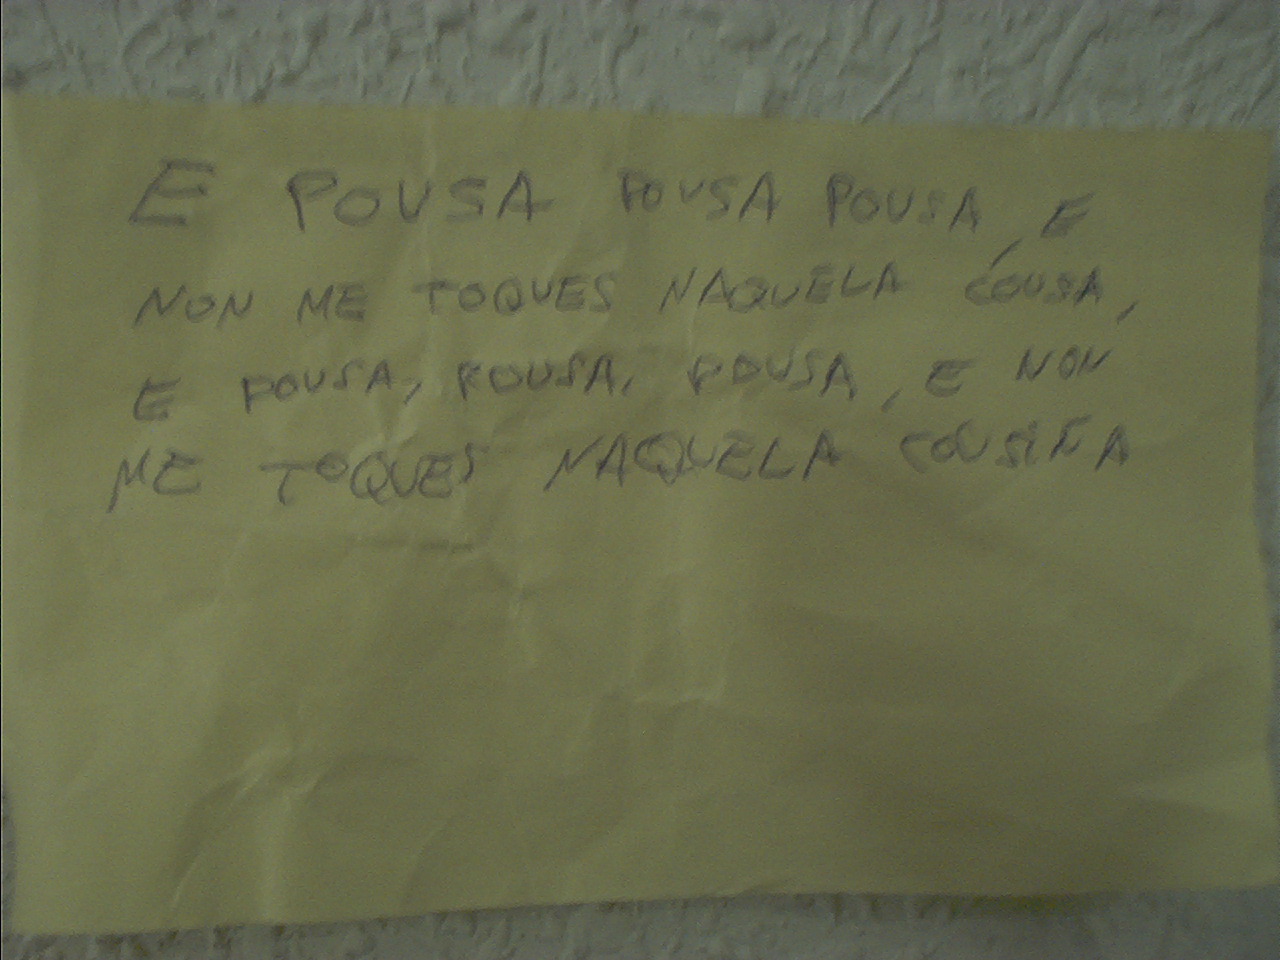 E POUSA POUSA POUSA, E
NON ME TOQUES NAQUELA COUSA,
E POUSA, POUSA, POUSA, E NON
ME TOQUES NAQUELA COUSIÑA